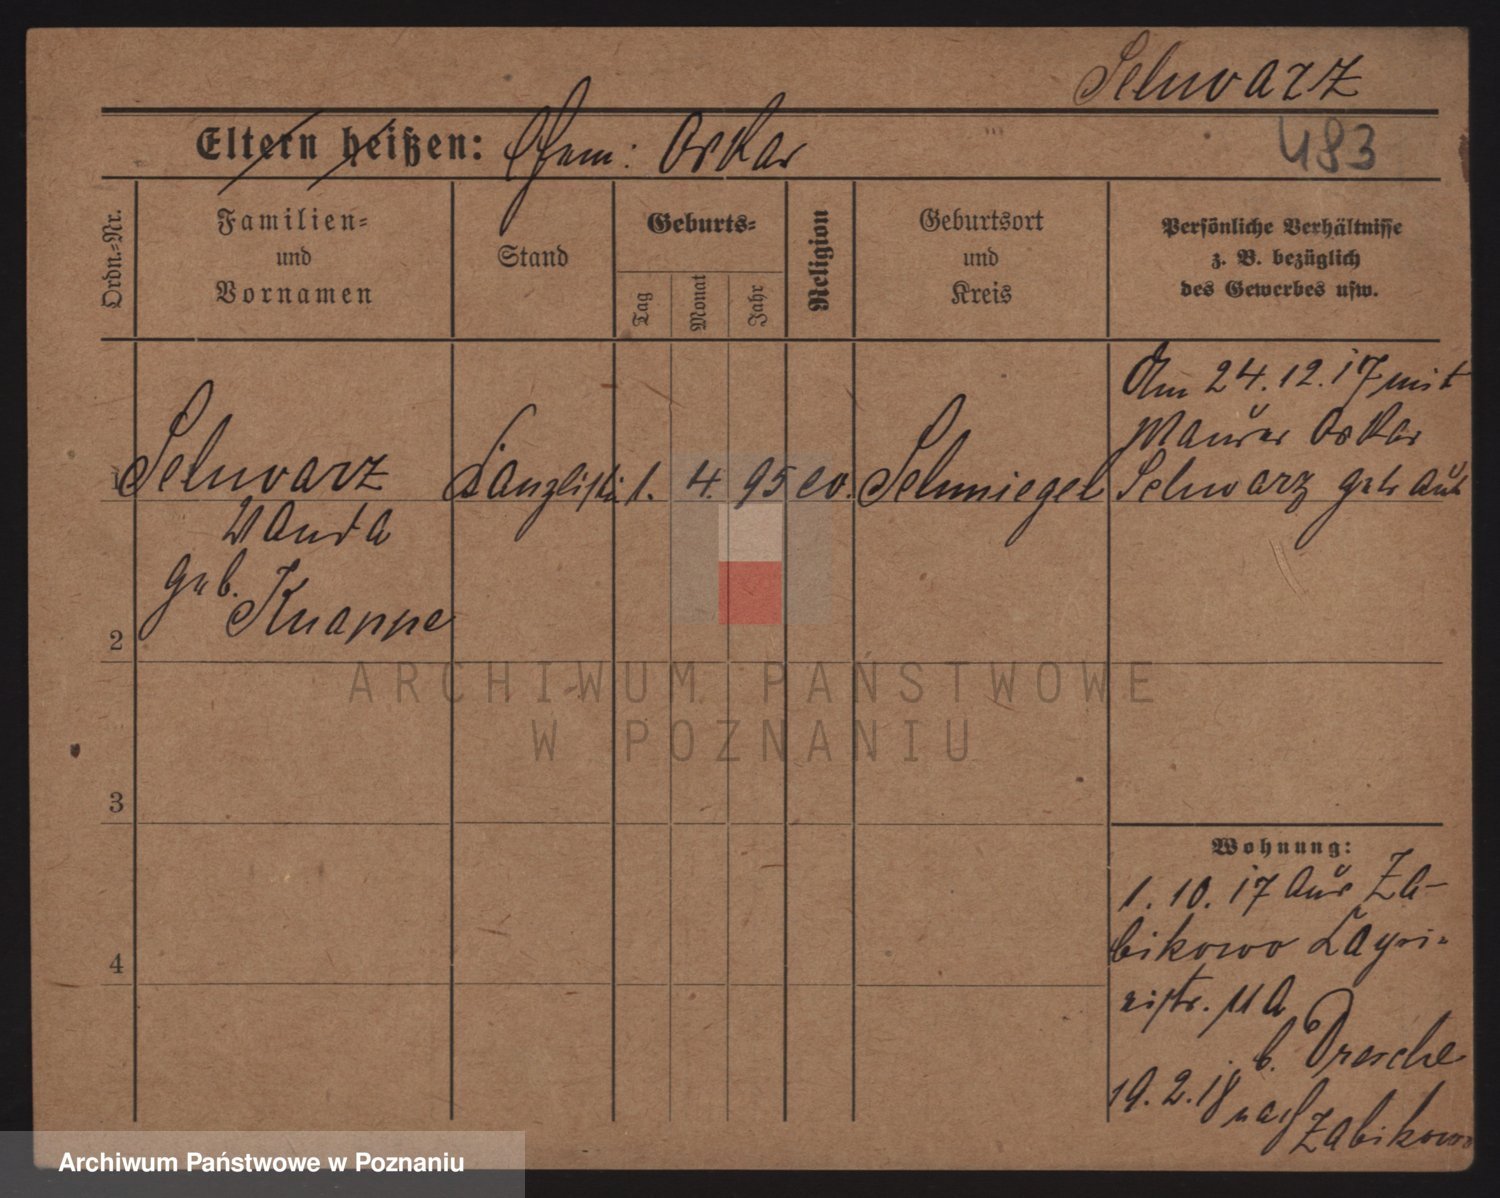 Schwarz
483
Eltern heißen: Ehem: Oskar
Ordn.=Nr.
Familien=
und
Vornamen
Stand
Geburts=
Tag
Monat
Jahr
Religion
Geburtsort
und
Kreis
Persönliche Verhältnisse
z. B. bezüglich
des Gewerbes usw.
1 Schwarz
Wanda
geb. Knappe
Kanzlistin
1. 4. 95 ev. Schmiegel
Am 24.12.17 mit
Maurer Oskar
Schwarz getraut
2
3
4
Wohnung:
1. 10. 17 aus Za-
bikowo
11a
b. Dresche
19. 2. 18 nach
Zabikowo
ARCHIWUM PAŃSTWOWE
W POZNANIU
Archiwum Państwowe w Poznaniu